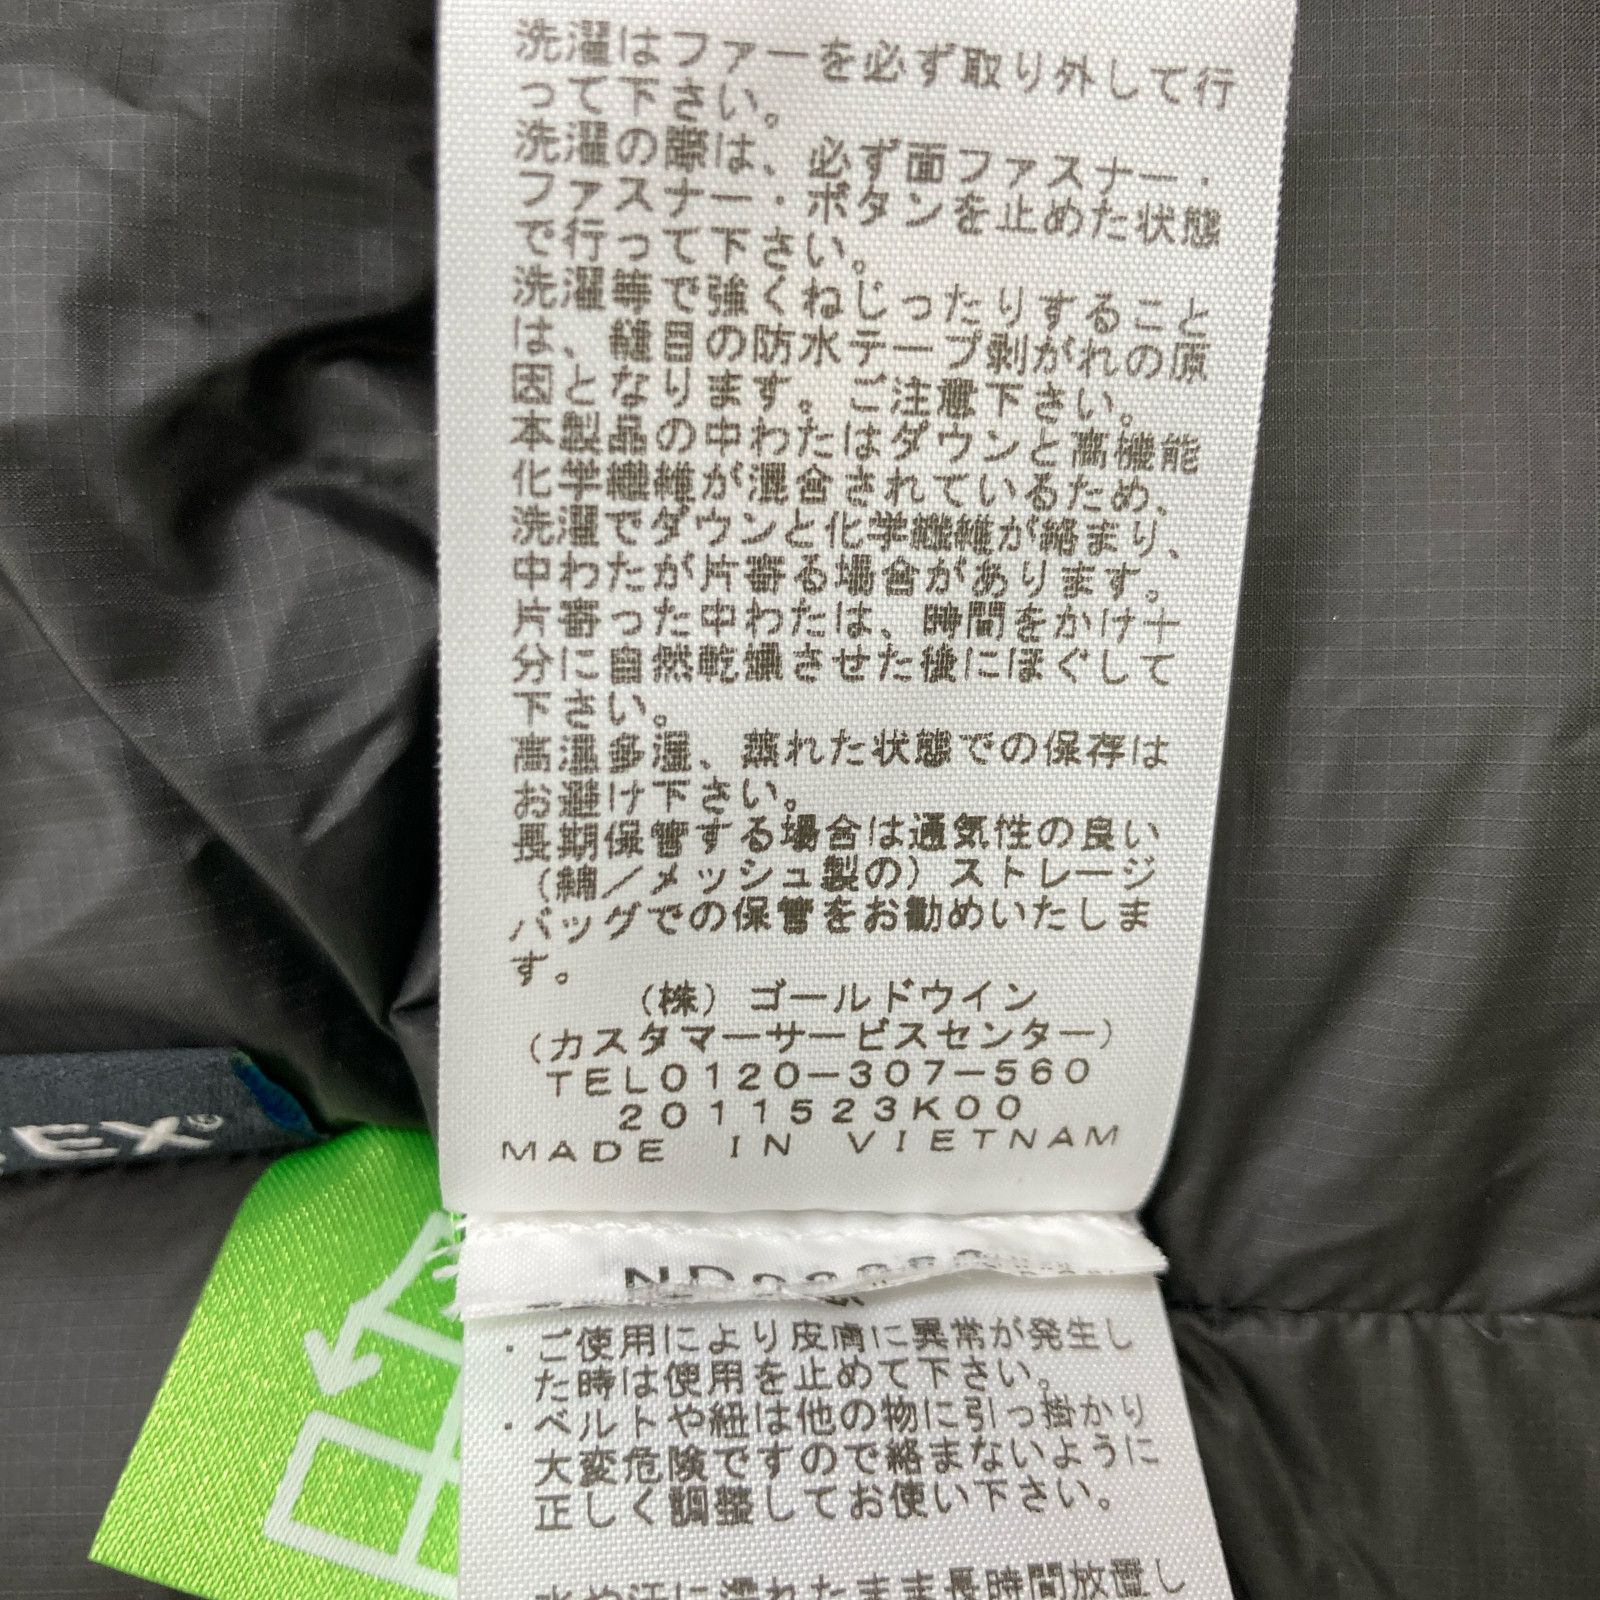 洗濯はファーを必ず取り外して行
って下さい。
洗濯の際は、必ず面ファスナー・
ファスナー・ボタンを止めた状態
で行って下さい。
洗濯等で強くねじったりすること
は、縫目の防水テープ剥がれの原
因となります。ご注意下さい。
本製品の中わたはダウンと高機能
化学繊維が混合されているため、
洗濯でダウンと化学繊維が絡まり、
中わたが片寄る場合があります。
片寄った中わたは、時間をかけ十
分に自然乾燥させた後にほぐして
下さい。
高温多湿、蒸れた状態での保存は
お避け下さい。
長期保管する場合は通気性の良い
(綿/メッシュ製の)ストレージ
バッグでの保管をお勧めいたしま
す。
(株)ゴールドウイン
(カスタマーサービスセンター)
TEL0120-307-560
2011523K00
MADE IN VIETNAM
EX®
ND
・ご使用により皮膚に異常が発生し
た時は使用を止めて下さい。
・ベルトや紐は他の物に引っ掛かり
大変危険ですので絡まないように
正しく調整してお使い下さい。
水や汗に濡れたまま長時間放置し